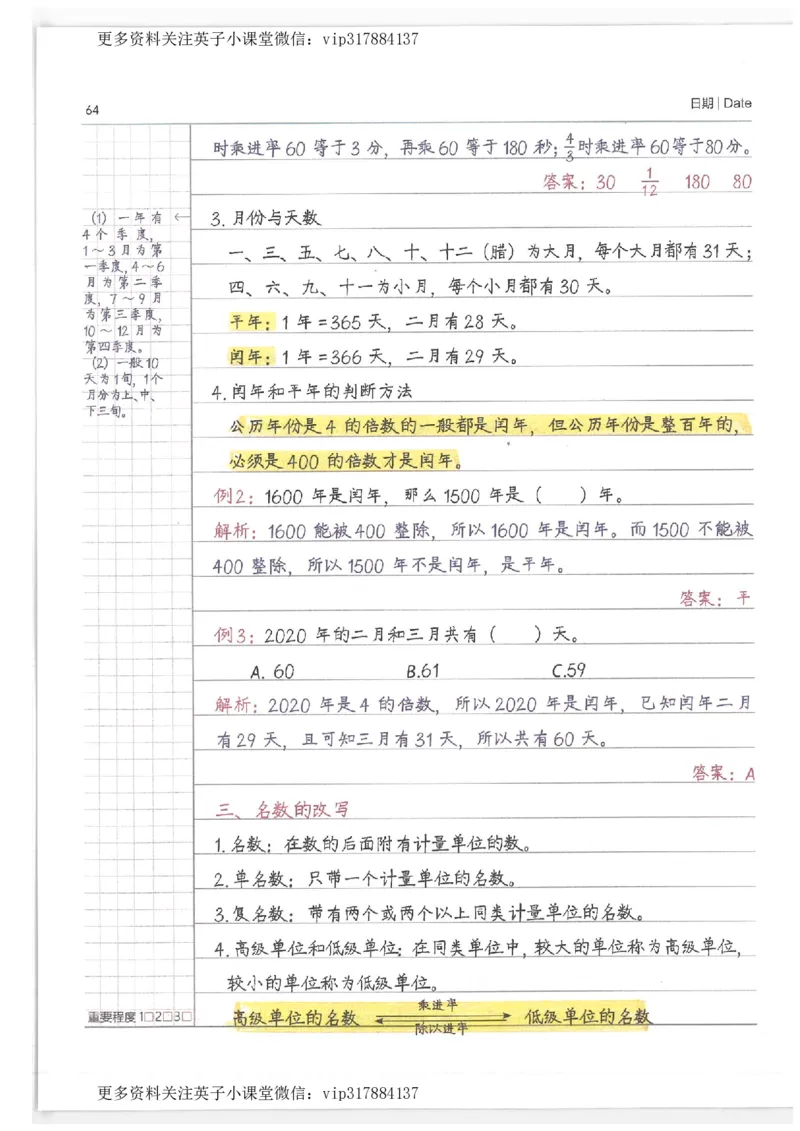 更多资料关注英子小课堂微信：vip317884137
64
日期 | Date
时乘进率60等于3分，再乘60等于180秒；4/3时乘进率60等于80分。
答案：30 1/12 180 80
(1) 一年有
4个季度，
1～3月为第
一季度，4～6
月为第二季
度，7～9月
为第三季度，
10～12月为
第四季度。
(2) 一般10
天为1旬，1个
月分为上、中、
下三旬。
3.月份与天数
一、三、五、七、八、十、十二（腊）为大月，每个大月都有31天；
四、六、九、十一为小月，每个小月都有30天。
平年：1年=365天，二月有28天。
闰年：1年=366天，二月有29天。
4.闰年和平年的判断方法
公历年份是4的倍数的一般都是闰年，但公历年份是整百年的，
必须是400的倍数才是闰年。
例2：1600年是闰年，那么1500年是（  ）年。
解析：1600能被400整除，所以1600年是闰年。而1500不能被
400整除，所以1500年不是闰年，是平年。
答案：平
例3：2020年的二月和三月共有（  ）天。
A. 60 B.61 C.59
解析：2020年是4的倍数，所以2020年是闰年，已知闰年二月
有29天，且可知三月有31天，所以共有60天。
答案：A
三、名数的改写
1.名数：在数的后面附有计量单位的数。
2.单名数：只带一个计量单位的名数。
3.复名数：带有两个或两个以上同类计量单位的名数。
4.高级单位和低级单位：在同类单位中，较大的单位称为高级单位，
较小的单位称为低级单位。
乘进率
高级单位的名数 低级单位的名数
除以进率
重要程度1□2□3□
更多资料关注英子小课堂微信：vip317884137